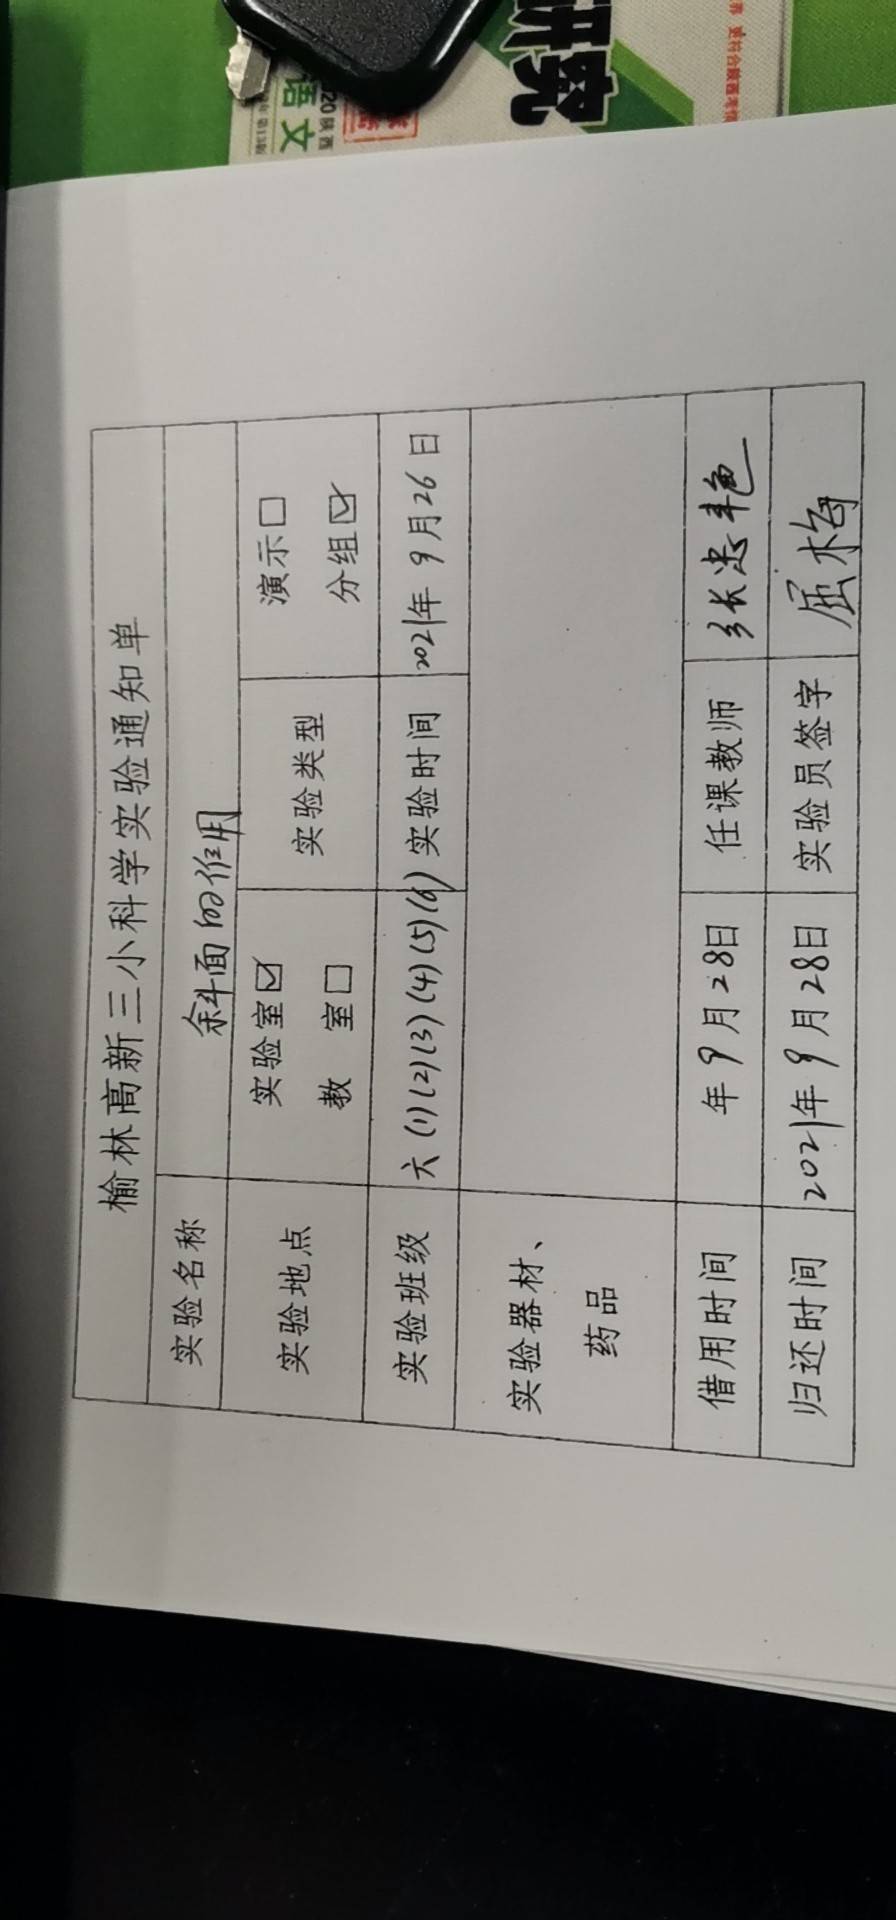 榆林高新三小科学实验通知单
实验名称 斜面的作用
实验地点 实验室☑ 教 室□ 实验类型 演示□ 分组☑
实验班级 六(1)(2)(3)(4)(5)(6) 实验时间 2021年9月26日
实验器材、
药品
借用时间 年9月28日 任课教师 张忠艳
归还时间 2021年9月28日 实验员签字 屈梅
研究
语文
20陕西